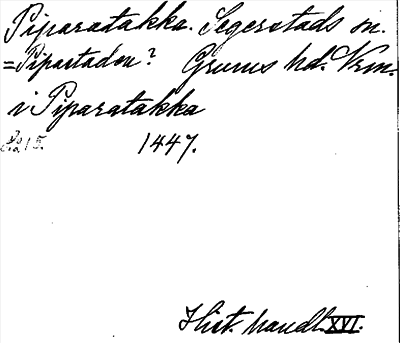 Piparatakka. Segerstads sn.
=Pipartadou? Grums hd. Vrm.
i Piparatakka
1447.
Hist. handl. XVI.